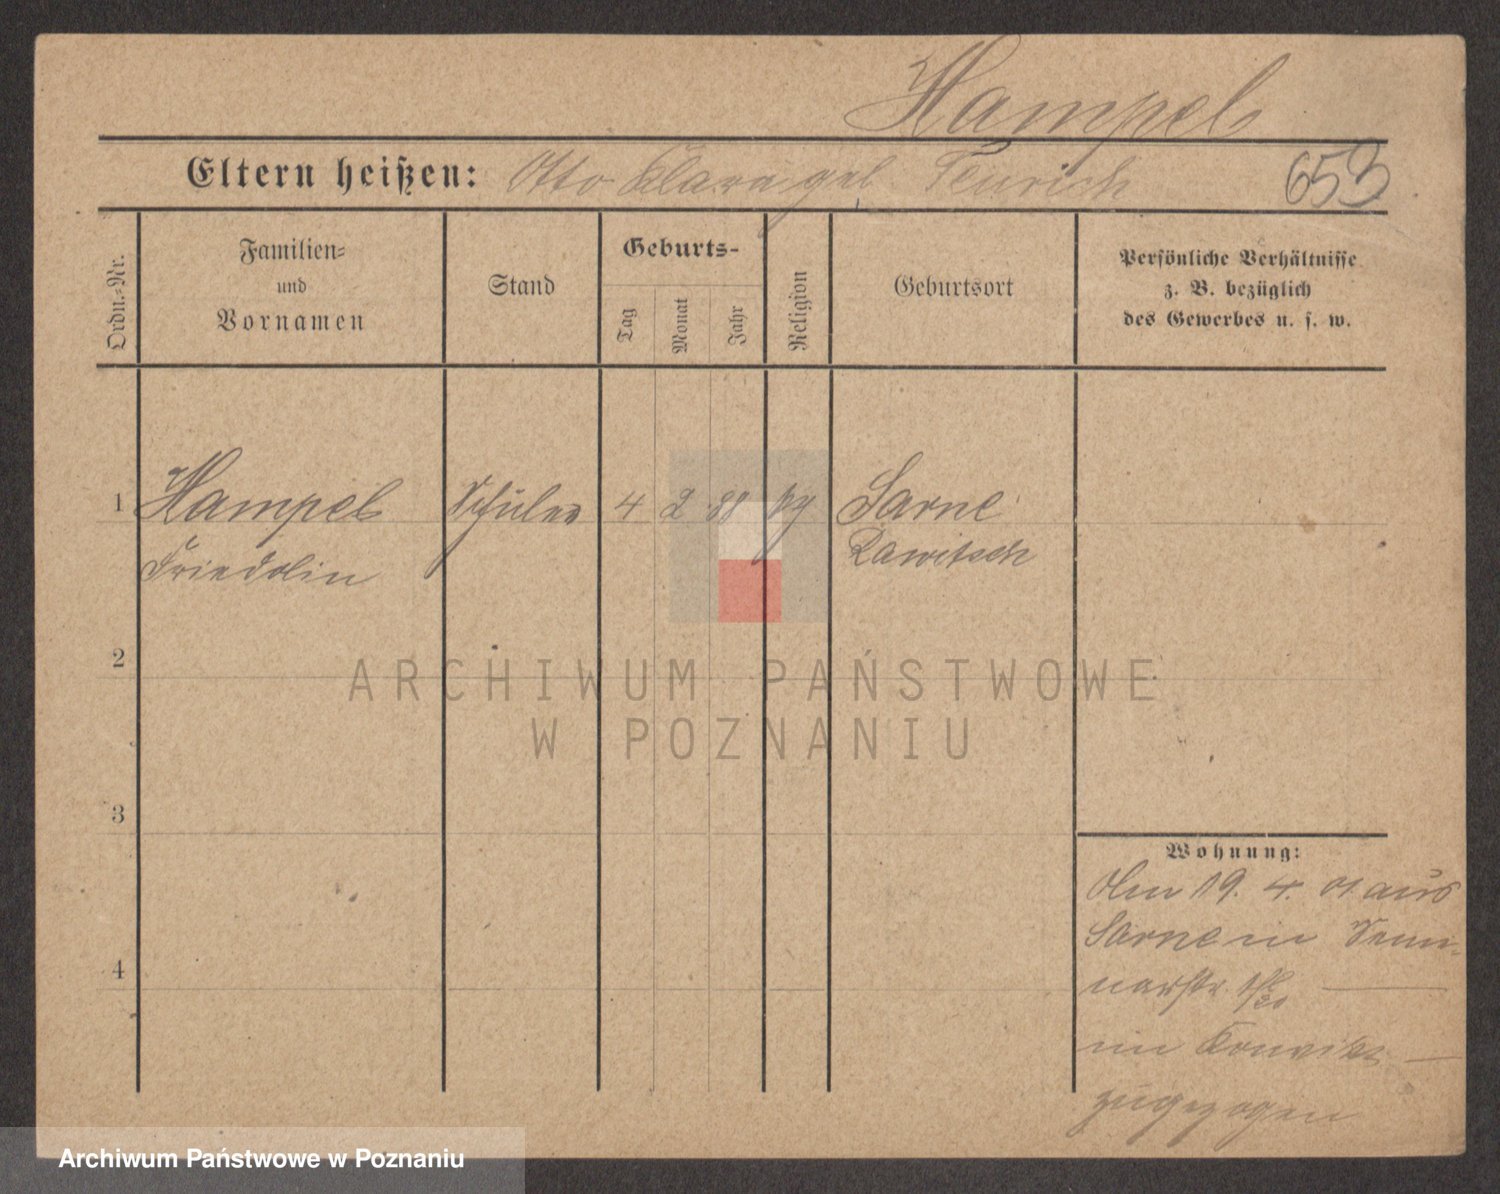 Hampel
Eltern heißen: Otto Klara geb. Teurich 653
Ordn.-Nr.
Familien-
und
Vornamen
Stand
Geburts-
Tag
Monat
Jahr
Religion
Geburtsort
Persönliche Verhältnisse
z. B. bezüglich
des Gewerbes u. s. w.
1 Hampel Schüler 4 2 88 Sarne
Friedolin Rawitsch
2
ARCHIWUM PAŃSTWOWE
W POZNANIU
3
Wohnung:
19. 4. 01 aus
Sarne in Semi-
4
narstr.
im Konvikt
zugezogen
Archiwum Państwowe w Poznaniu